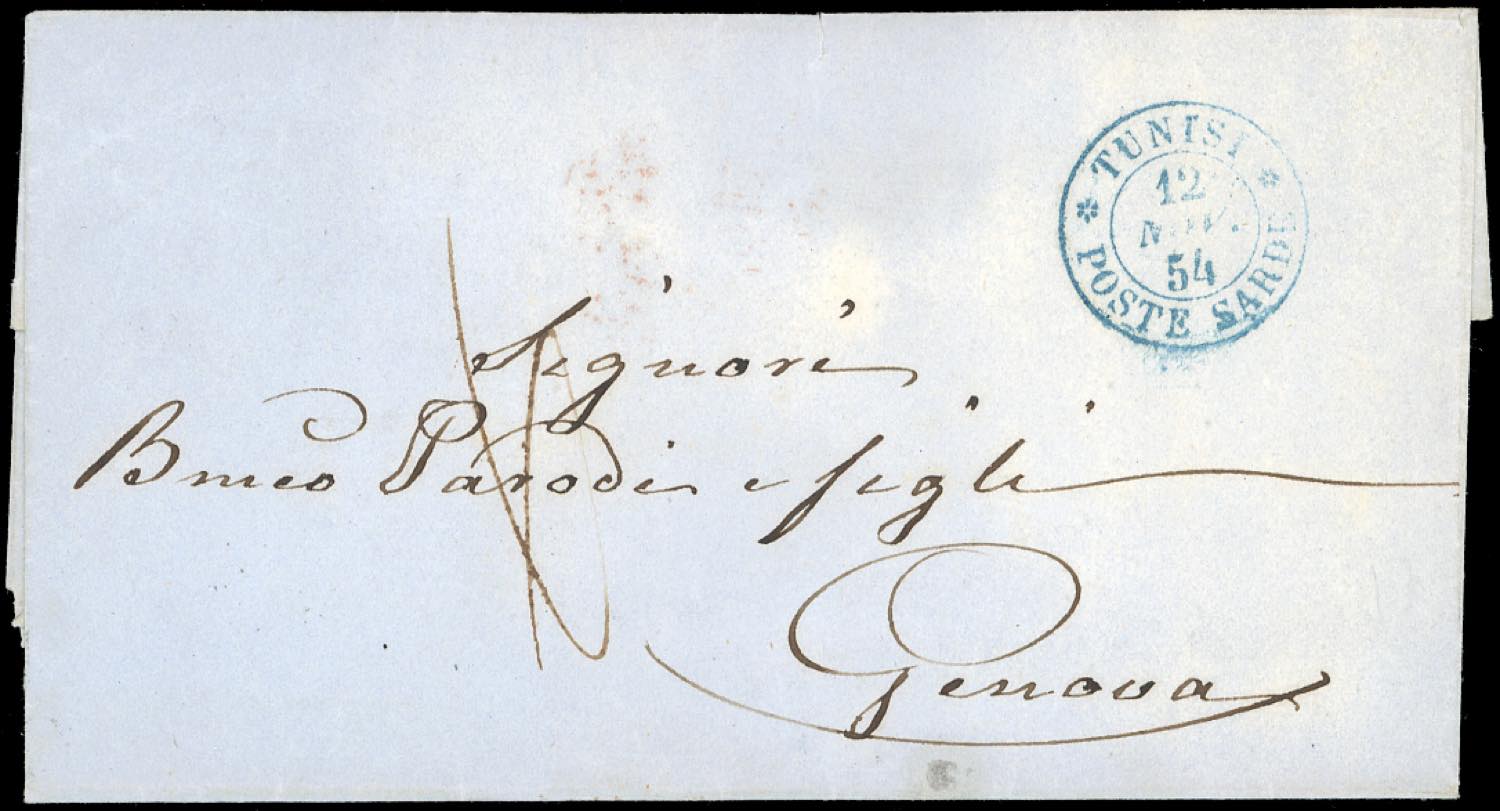 * TUNISI *
12
NOV.
54
POSTE SARDE
Signori
Parodi e figli
Genova